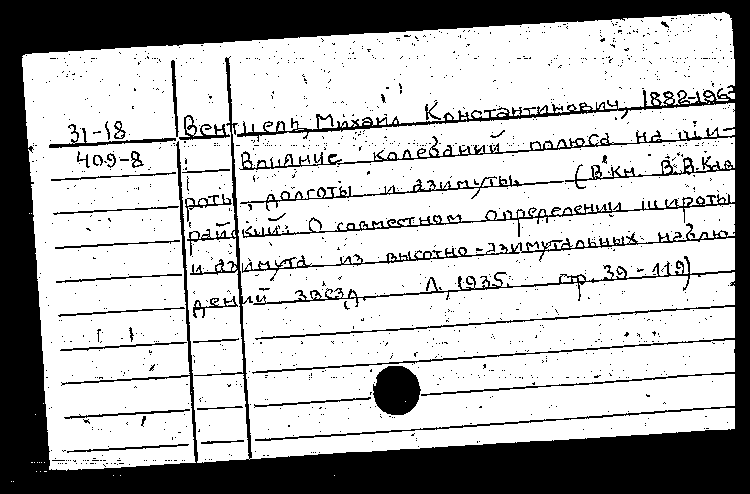 31-18 Вентцель, Михаил Константинович, 1882-1963
409-8 Влияние колебаний полюса на ши-
роты, долготы и азимуты. (В кн. В.В.Кав
райский. О совместном определении широты
и азимута из высотно-азимутальных наблю-
дений звезд. Л., 1935. стр. 39-119).